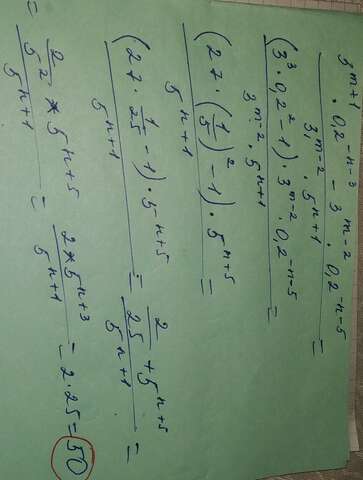 3^{m+1} · 0,2^{-n-3} - 3^{m-2} · 0,2^{-n-5} / 3^{m-2} · 5^{n+1} =
(3^3 · 0,2^2 - 1) · 3^{m-2} · 0,2^{-n-5} / 3^{m-2} · 5^{n+1} =
(27 · (1/5)^2 - 1) · 5^{n+5} / 5^{n+1} =
(27 · 1/25 - 1) · 5^{n+5} / 5^{n+1} = 2/25 * 5^{n+5} / 5^{n+1} =
= 2/5^2 * 5^{n+5} / 5^{n+1} = 2 * 5^{n+3} / 5^{n+1} = 2 · 25 = 50